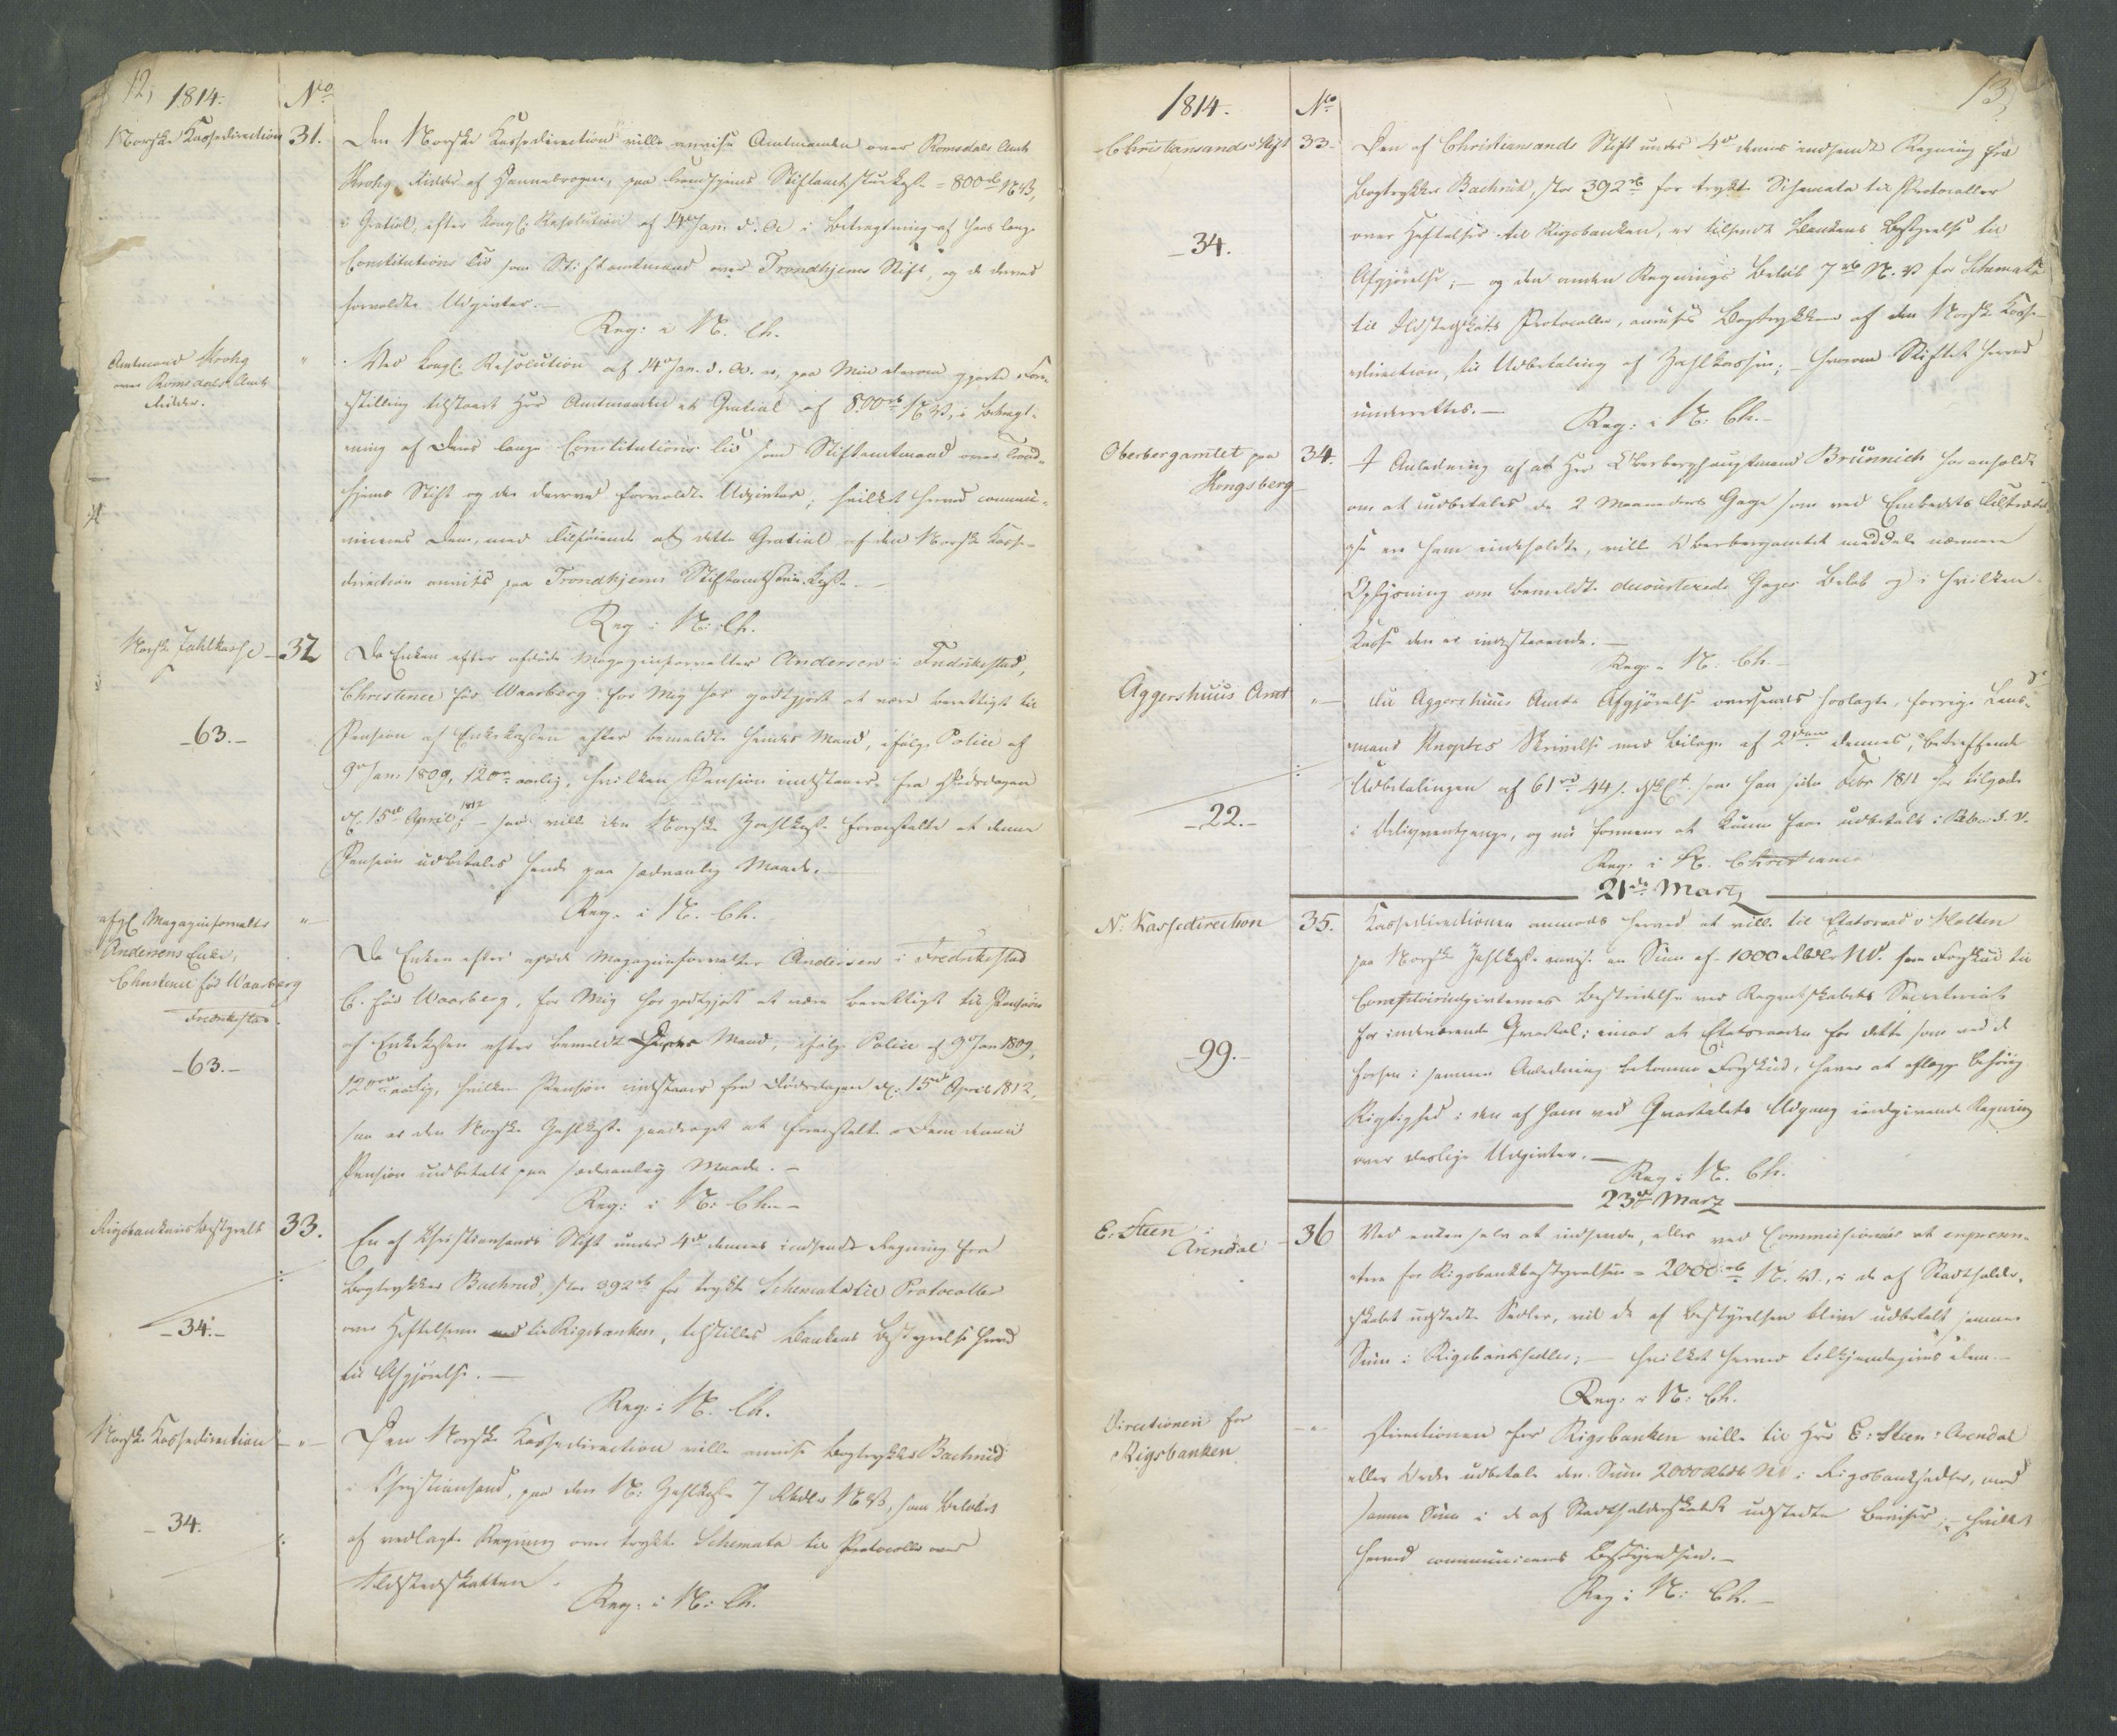 12,
1814.
No
Norske Kassedirection
31.
Den Norske Kassedirection ville anvise Amtmanden over Romsdals Amt
Krohg, Ridder af Dannebrogen, paa Trondhjems Stiftamtstuekasse = 800 rb N.V,
i Gratial, efter kongl: Resolution af 14de Jan: d. A. i Betragtning af hans lange
Constitutions Tid som Stiftamtmand over Trondhjems Stift, og de derved
forvoldte Udgivter. —
Reg: i N. Ch.
Amtmand Krohg
over Romsdals Amt
Ridder.
"
Ved kongl: Resolution af 14de Jan. d. A. er, paa Min derom gjorte Fore-
stilling tilstaaet Hr Amtmanden et Gratial af 800 rb N.V, i Betragt-
ning af Deres lange Constitutions Tid som Stiftamtmand over Trond-
hjems Stift og de derved forvoldte Udgivter; hvilket herved commu-
niceres Dem, med Tilføiende at dette Gratial af den Norske Kasse-
direction anvises paa Trondhjems Stiftamtstue Kasse. —
Reg i N: Ch.
Norske Zahlkasse
32
Da Enken efter afdøde Magazinforvalter Andersen i Fredrikstad,
Christence fød Waarberg for Mig har godtgjort at være berettiget til
Pension af Enkekassen efter bemeldte hendes Mand, ifølge Police af
9de Jan: 1809, 120 rd aarlig, hvilken Pension indestaaer fra Dødsdagen
d. 15de April 1812, — saa ville den Norske Zahlkasse foranstalte at denne
Pension udbetales hende paa sædvanlig Maade. —
Reg. i N. Ch.
-63.-
afg. Magazinforvalter
Andersens Enke,
Christence fød Waarberg
Fredrikstad
"
Da Enken efter afdøde Magazinforvalter Andersen i Fredrikstad
C. fød Waarberg, for Mig har godtgjort at være berettiget til Pension
af Enkekassen efter bemeldte Deres Mand, ifølge Police af 9de Jan 1809,
120 rd aarlig, hvilken Pension indstaaer fra Dødsdagen d: 15de April 1812,
saa er den Norske Zahlkasse paadraget at foranstalte Dem denne
Pension udbetalt paa sædvanlig Maade. —
Reg: i N: Ch. —
-63.-
Rigsbankens Bestyrelse
33.
En af Christiansands Stift under 4de dennes indsendt Regning fra
Bogtrykker Bachrud, stor 392 rb for trykte Schemata til Protocoller
over Heftelserne til Rigsbanken, tilstilles Bankens Bestyrelse herved
til Afgjørelse. —
Reg: i N. Ch.
-34.-
Norske Kassedirection
— " —
Den Norske Kassedirection ville anvise Bogtrykker Bachrud
i Christiansand, paa den N: Zahlkasse 7 Rbdlr N.V, som Beløbet
af vedlagte Regning over trykte Schemata til Protocoller over
Ildstedskatten.
Reg: i N: Ch.
-34.
13,
1814.
No
Christiansands Stift
33.
Den af Christiansands Stift under 4de dennes indsendte Regning fra
Bogtrykker Bachrud, stor 392 rb for trykte Schemata til Protocoller
over Heftelser til Rigsbanken, er tilsendt Bankens Bestyrelse til
Afgjørelse; — og den anden Regnings Beløb 7 rb N.V for Schemata
til Ildstedskats Protocoller, anvises Bogtrykkeren af den Norske Kasse-
direction, til Udbetaling af Zahlkassen; — hvorom Stiftet herved
underrettes. —
Reg: i N: Ch. —
-34.
Oberbergamtet paa
Kongsberg
34.
I Anledning af at Hr Oberberghauptmand Brünnich har anholdt
om at udbetales de 2 Maaneders Gage som ved Embedets Tiltrædel-
se er ham indeholdte, ville Oberbergamtet meddele nærmere
Oplysning om bemeldte decourterede Gages Beløb og i hvilken
Kasse den er indestaaende. —
Reg. i N. Ch. —
Aggershuus Amt
" —
Til Aggershuus Amts Afgjørelse oversendes hoslagte, forrige Lens-
mand Knophs Skrivelse med Bilage af 2den dennes, betreffende
Udbetalingen af 61 rd 44 s. som han siden Febr 1811 har tilgode
i Deliqventpenge, og nu formener at kunne faae udbetalt i Rbd. N.V.
Reg. i N. Christiania
-22.-
21de Martz
N: Kassedirection
35.
Kassedirectionen anmodes herved at ville til Etatsraad v Holten
paa Norske Zahlkasse anvise en Sum af 1000 Rbdlr N.V. som Forskud til
Comptoirudgivternes Bestridelse ved Regentskabets Secretariat
for indeværende Qvartal; imod at Etatsraaden for dette som ved de
forhen i samme Anledning bekomne Forskud, haver at aflægge behørig
Rigtighed i den af ham ved Qvartalets Udgang indgivende Regning
over deslige Udgivter. —
Reg: i N. Ch.
-99.-
23de Martz
E. Steen i
Arendal
36
Ved enten selv at indsende, eller ved Commissionair at repræsen-
tere for Rigsbankbestyrelsen = 2000 rb N.V., i de af Stadtholder-
skabet udstedte Sedler, vil de af Bestyrelsen blive udbetalt samme
Sum i Rigsbanksedler; — hvilket herved tilkjendegives Dem. —
Reg: i N: Ch.
Directionen for
Rigsbanken
— " —
Directionen for Rigsbanken ville til Hr E: Steen i Arendal
eller Ordre udbetale den Sum 2000 Rbdlr N.V i Rigsbanksedler, mod
samme Sum i de af Stadtholderskabet udstedte Beviser; — hvilket
herved communiceres Bestyrelsen. —
Reg: i N: Ch. —